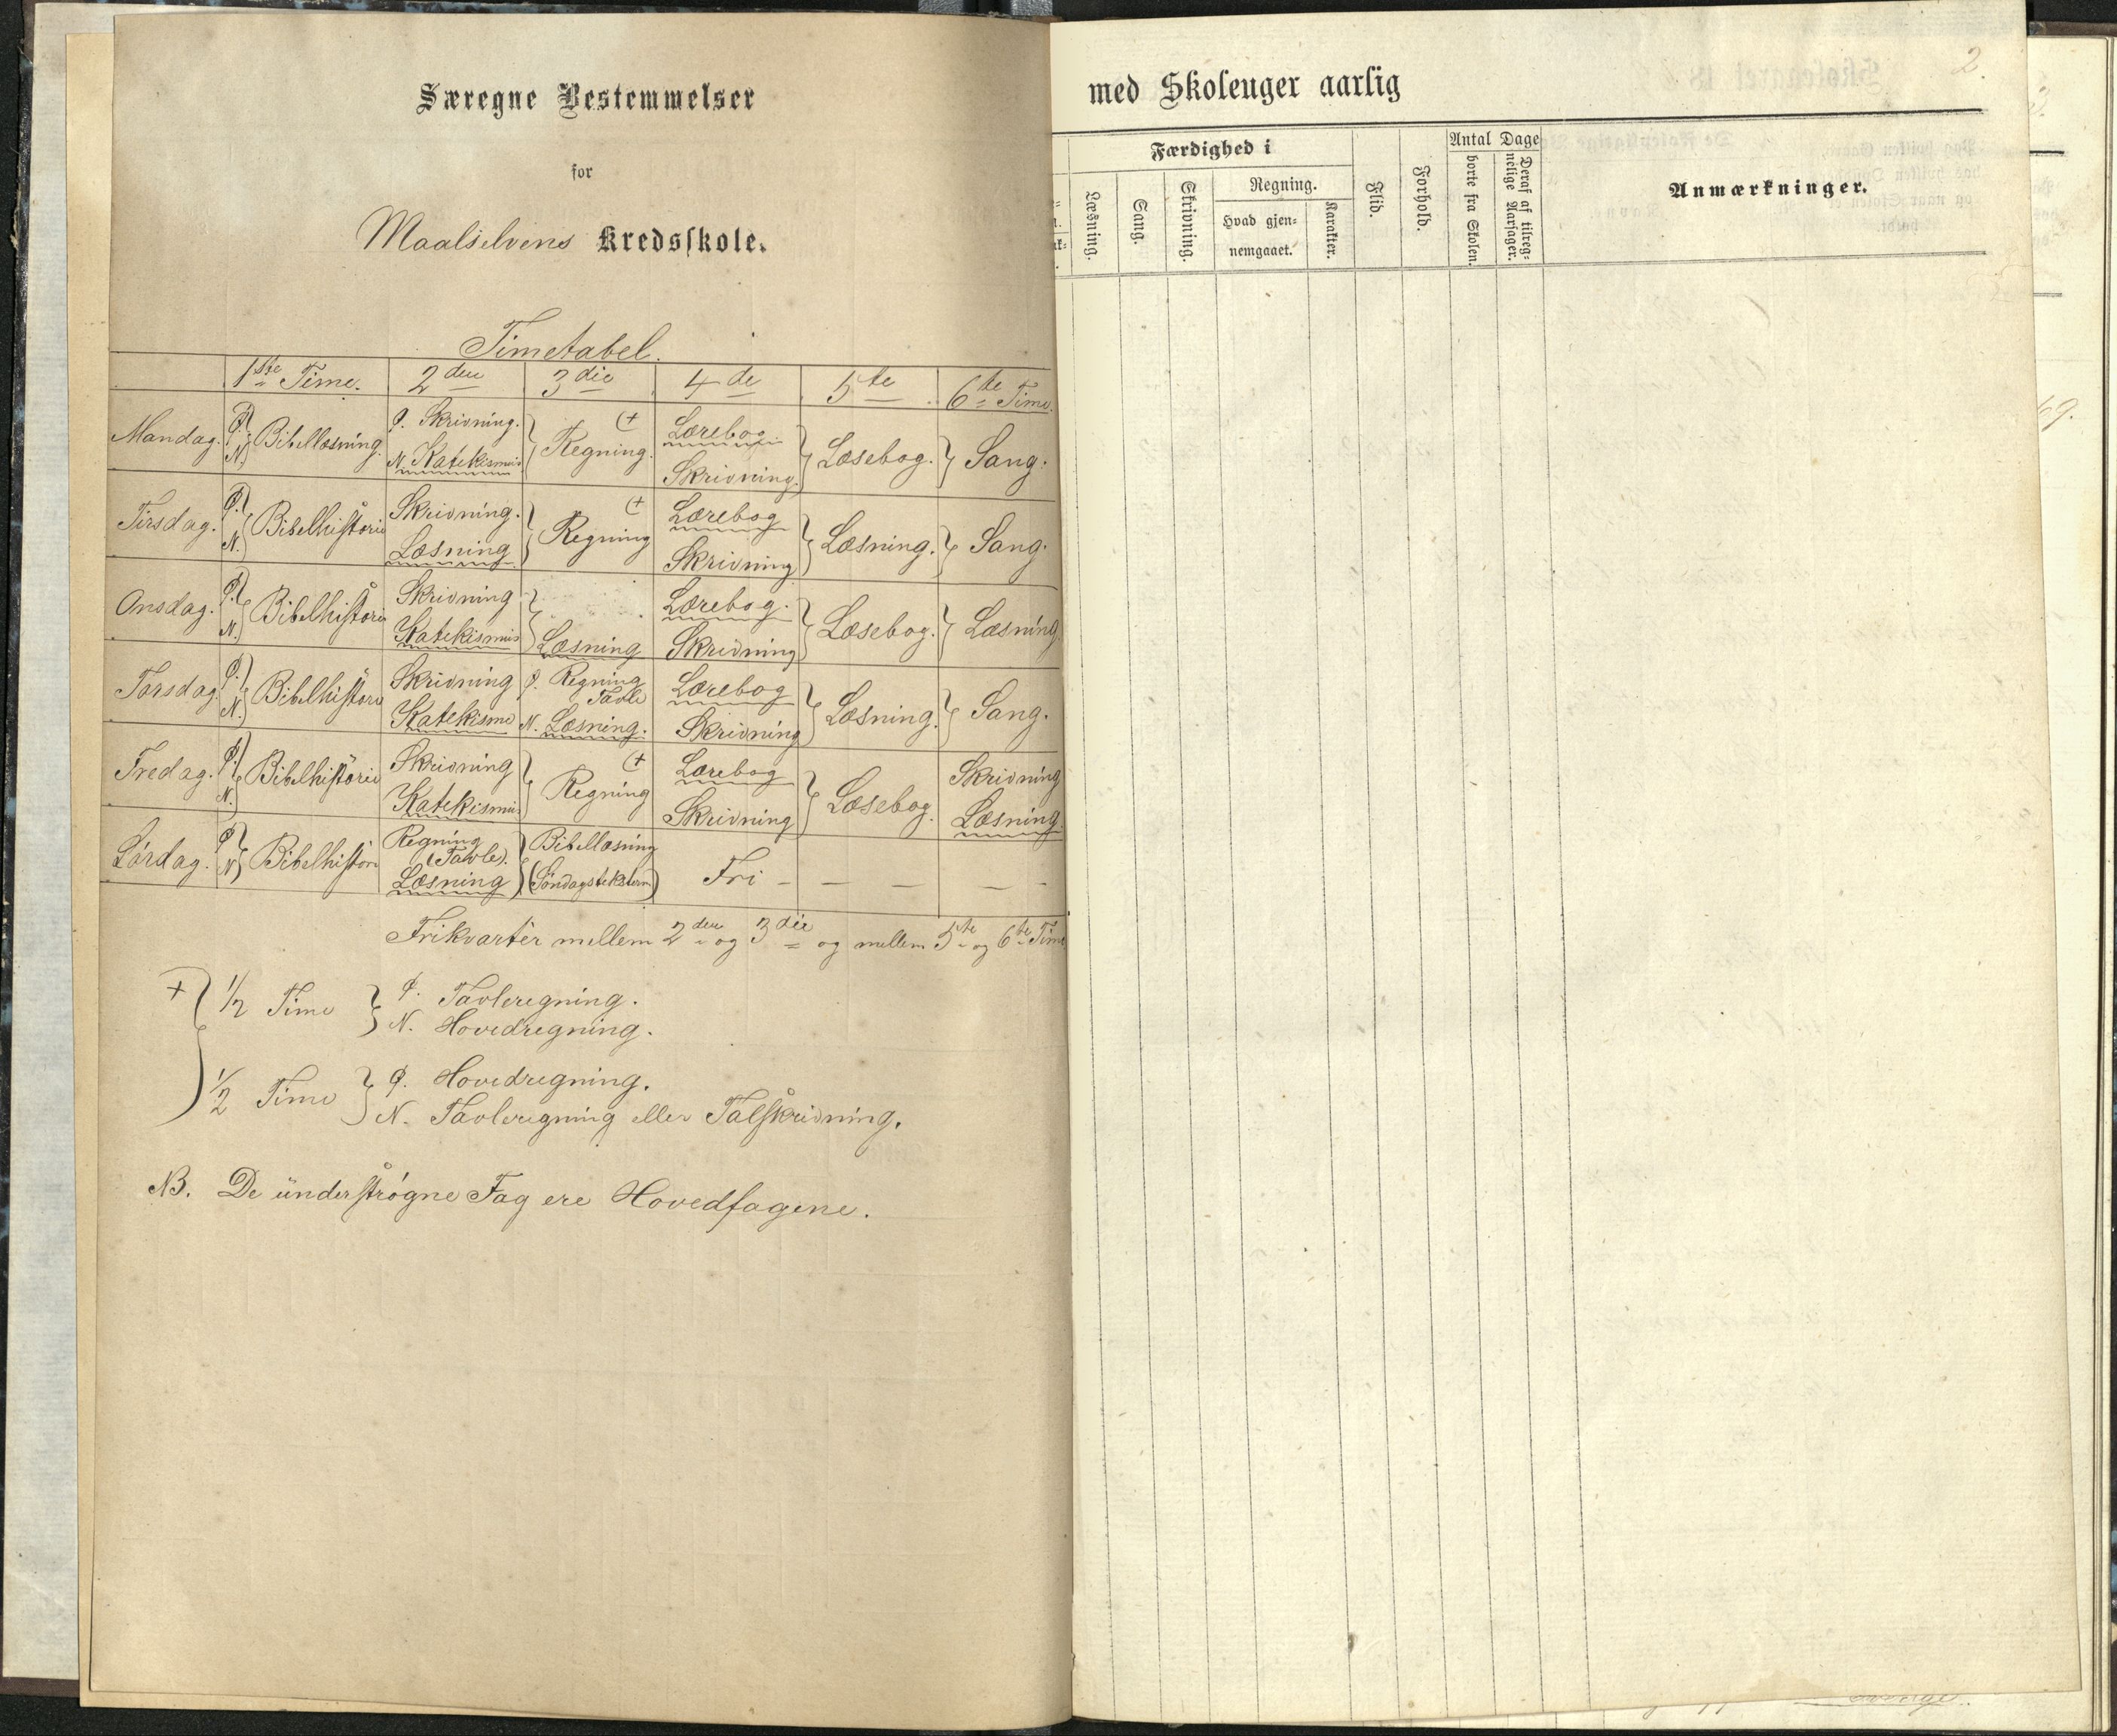 Særegne Bestemmelser
for
Maalselvens Kredsskole.
Timetabel.
1ste Time. 2den 3die 4de 5te 6te Time.
Mandag. Ø. N. Bibellæsning. Ø. Skrivning. N. Katekismus Regning. (+ Lærebog. Skrivning. Læsebog. Sang.
Tirsdag. Ø. N. Bibelhistorie Skrivning. Læsning Regning (+ Lærebog Skrivning Læsning. Sang.
Onsdag. Ø. N. Bibelhistorie Skrivning Katekismus Læsning Lærebog. Skrivning Læsebog. Læsning
Torsdag. Ø. N. Bibelhistorie Skrivning Katekisme Ø. Regning Tavle N. Læsning. Lærebog Skrivning Læsning. Sang.
Fredag. Ø. N. Bibelhistorie Skrivning Katekismus Regning (+ Lærebog Skrivning Læsebog. Skrivning Læsning
Lørdag. Ø N Bibelhistorie Regning (Tavle). Læsning Bibellæsning (Søndagsteksten) Fri - — — — -
Frikvartér mellem 2den og 3die og mellem 5te og 6te Time
+ 1/2 Time Ø. Tavleregning.
N. Hovedregning.
1/2 Time Ø. Hovedregning.
N. Tavleregning eller Talskrivning.
NB. De understrøgne Fag ere Hovedfagene.
2.
med Skoleuger aarlig
Færdighed i
Læsning.
Sang.
Skrivning.
Regning.
Hvad gjen-
nemgaaet.
Karakter.
Flid.
Forhold.
Antal Dage
borte fra Skolen.
Deraf af tilreg-
nelige Aarsager.
Anmærkninger.